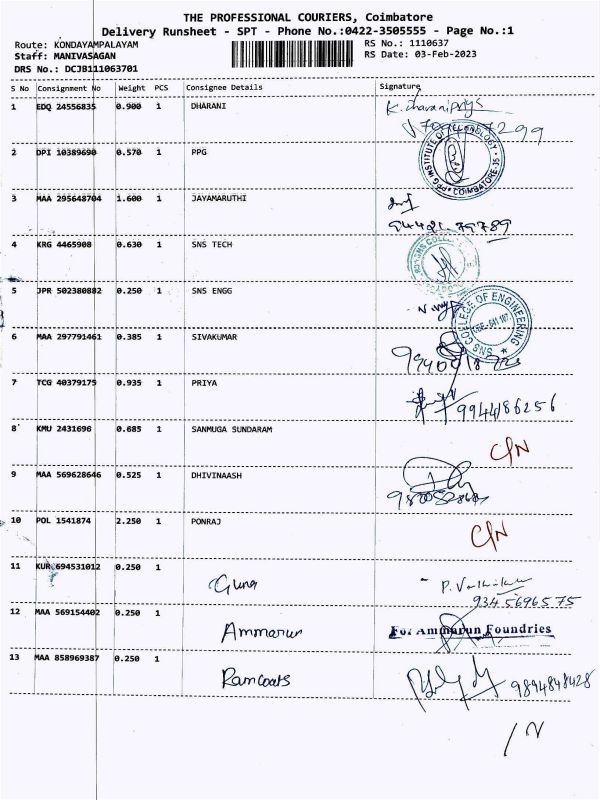 THE PROFESSIONAL COURIERS, Coimbatore
Delivery Runsheet - SPT - Phone No.:0422-3505555 - Page No.:1
Route: KONDAYAMPALAYAM RS No.: 1110637
Staff: MANIVASAGAN RS Date: 03-Feb-2023
DRS No.: DCJB111063701
S No Consignment No Weight PCS Consignee Details Signature
1 EDQ 24556835 0.900 1 DHARANI
2 DPI 10389690 0.570 1 PPG
PPG INSTITUTE OF TECHNOLOGY COIMBATORE-35
3 MAA 295648704 1.600 1 JAYAMARUTHI
94421 79789
4 KRG 4465908 0.630 1 SNS TECH
5 JPR 502380882 0.250 1 SNS ENGG
SNS COLLEGE OF ENGINEERING
6 MAA 297791461 0.385 1 SIVAKUMAR
7 TCG 40379175 0.935 1 PRIYA
9944186256
8 KMU 2431696 0.685 1 SANMUGA SUNDARAM
C/N
9 MAA 569628646 0.525 1 DHIVINAASH
10 POL 1541874 2.250 1 PONRAJ
C/N
11 KUR 694531012 0.250 1 Guna
9345696575
12 MAA 569154402 0.250 1 Ammarun For Ammarun Foundries
13 MAA 858969387 0.250 1 Ramcoats
9894848428
/N